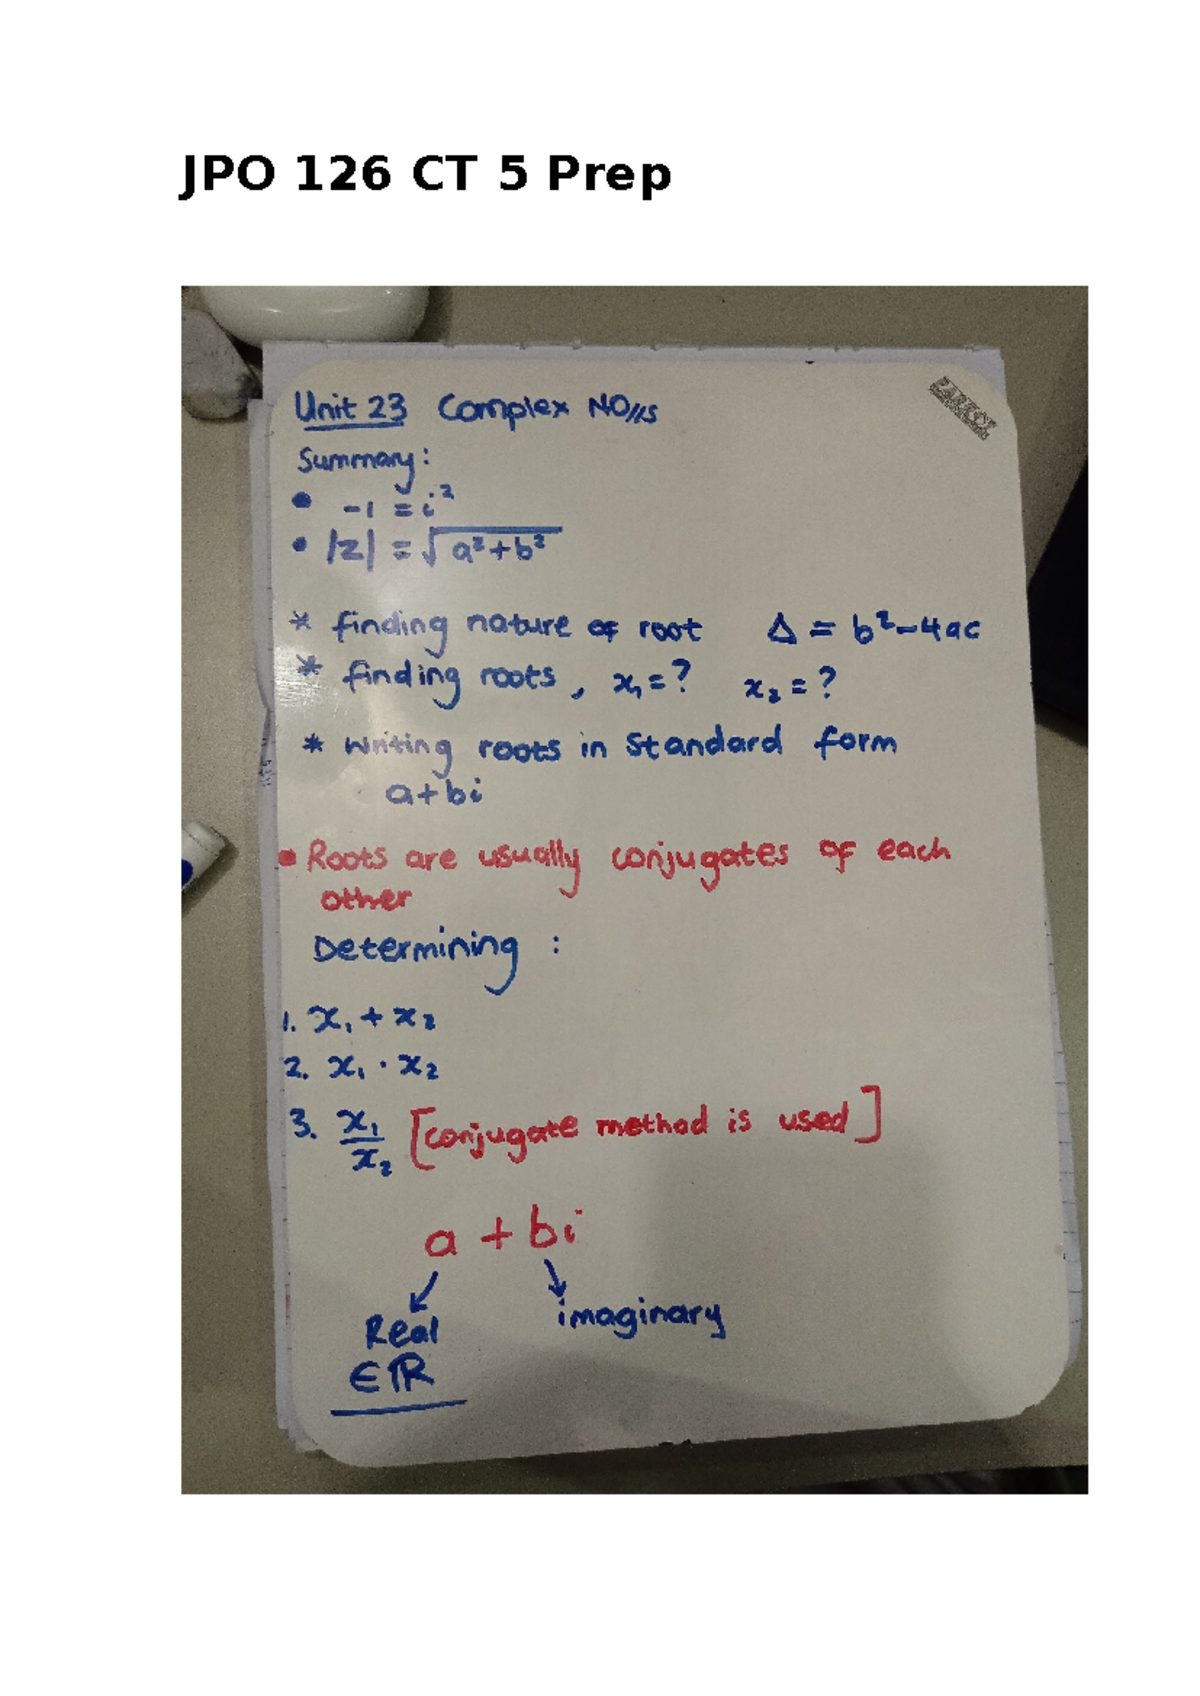 JPO 126 CT 5 Prep
Unit 23 Complex NO//s
Summary:
• -1 = i²
• |z| = √a²+b²
* finding nature of root Δ = b²-4ac
* finding roots, x₁=? x₂=?
* Writing roots in standard form
a+bi
• Roots are usually conjugates of each
other
Determining :
1. x₁ + x₂
2. x₁ · x₂
3. x₁/x₂ [conjugate method is used]
a + bi
Real imaginary
∈ ℝ